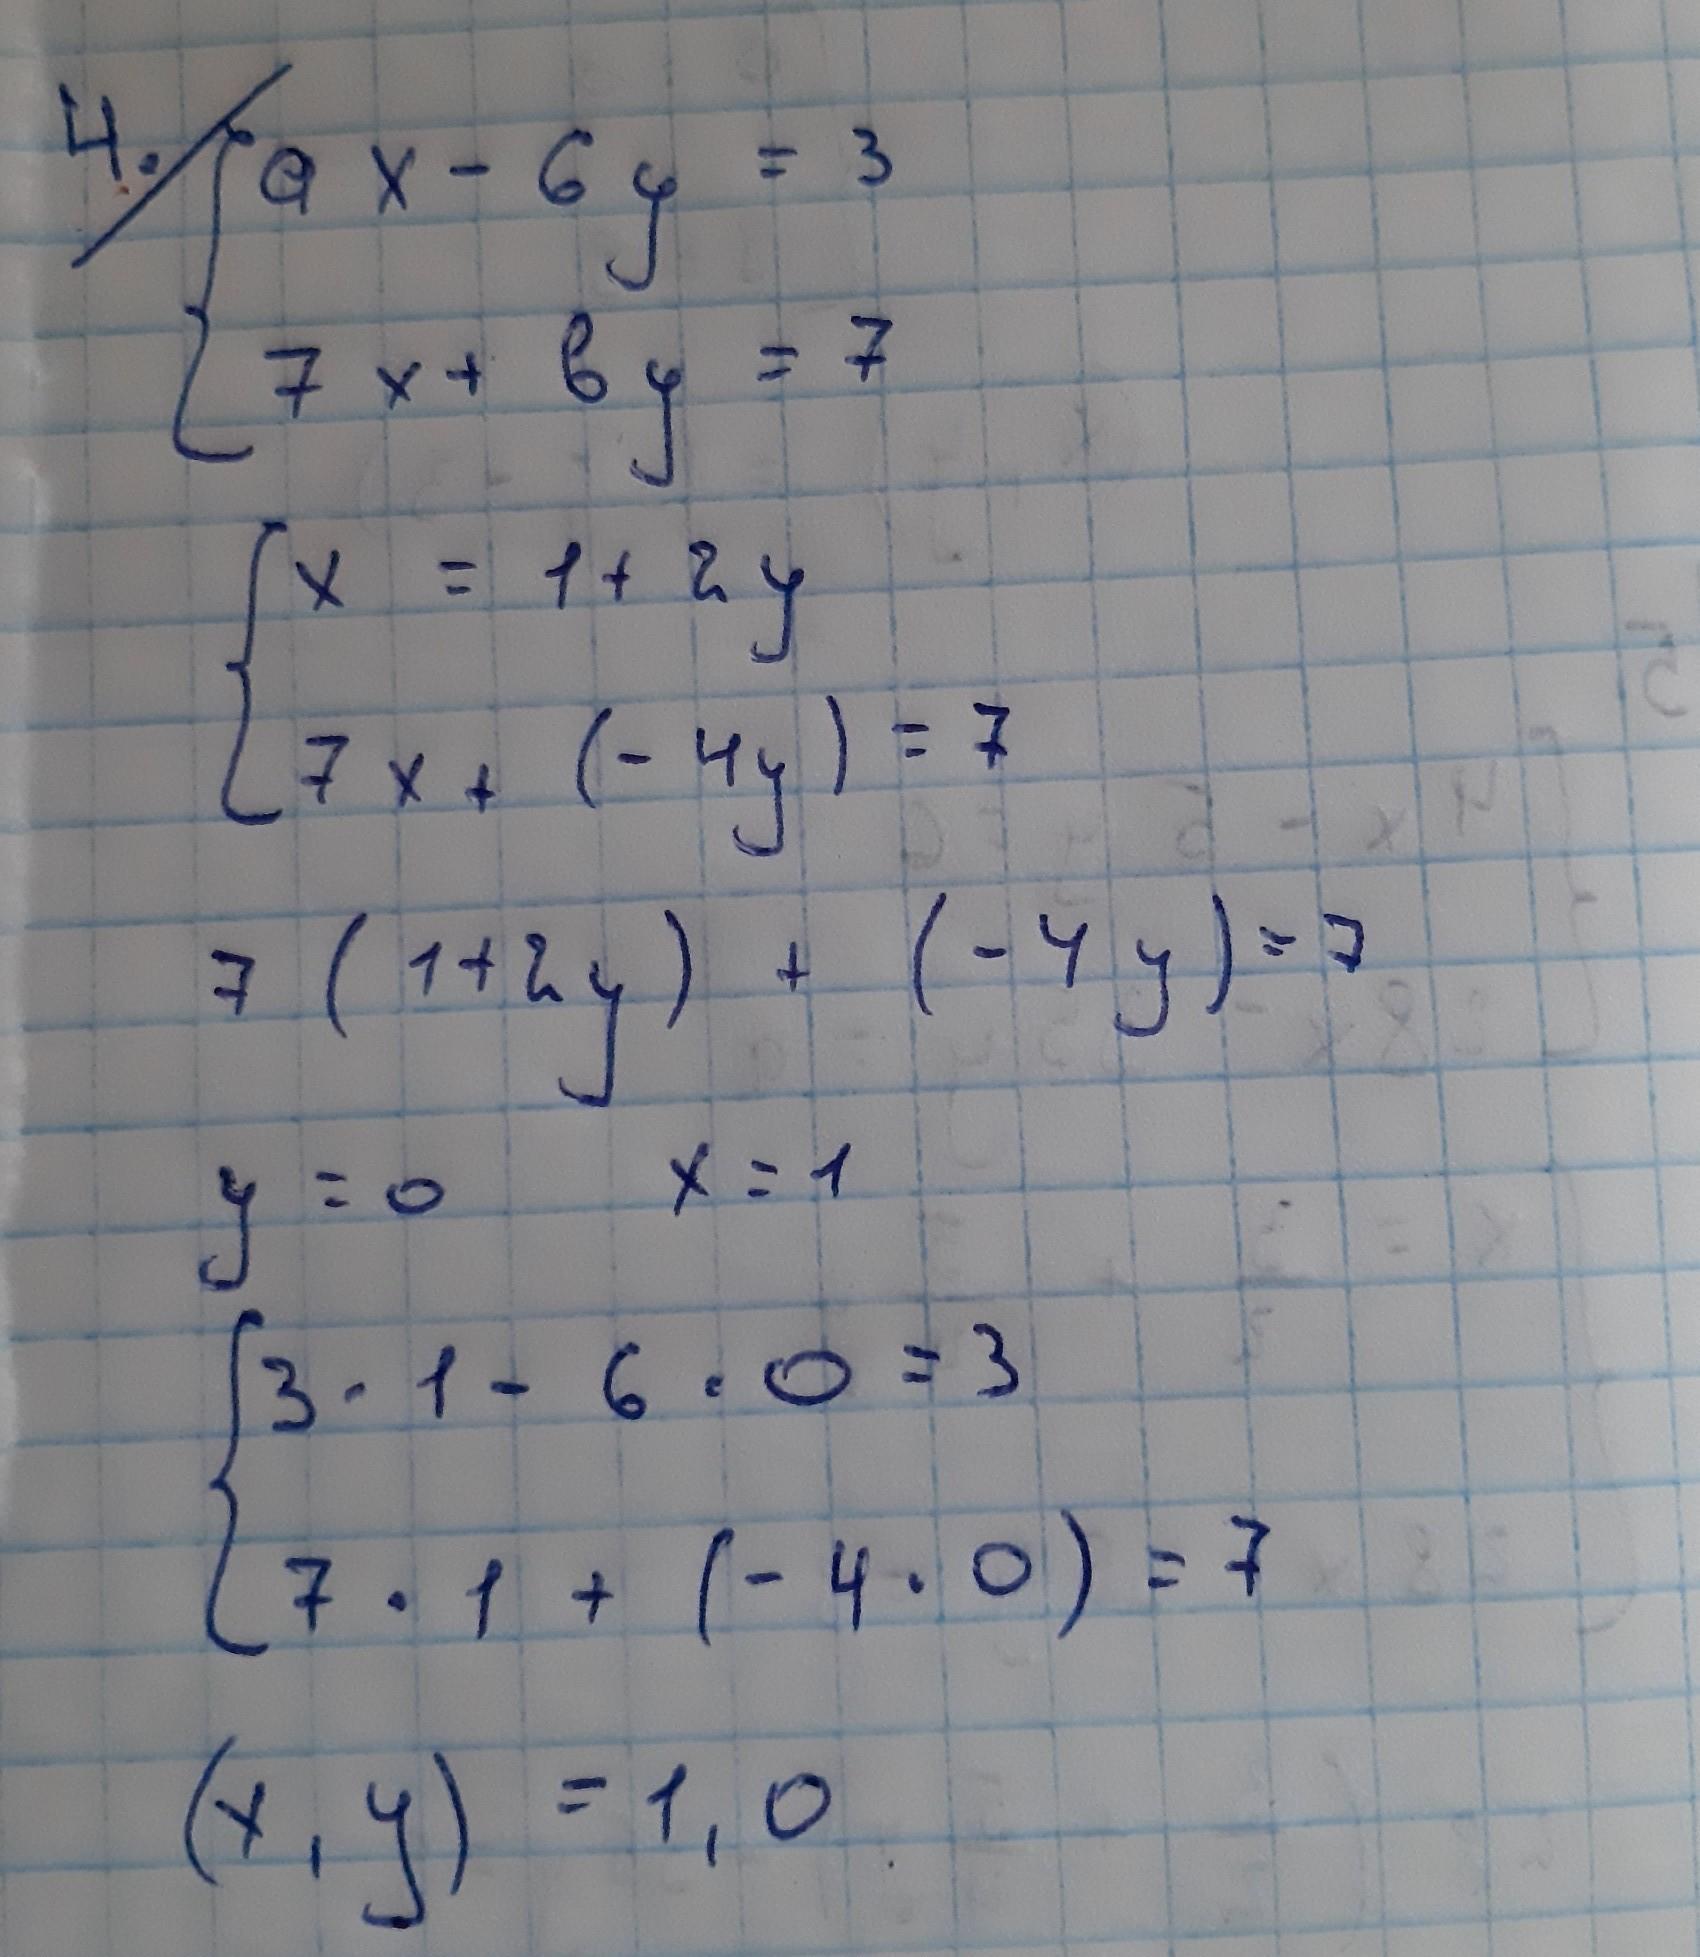 4. ax - 6y = 3
7x + by = 7
x = 1 + 2y
7x + (- 4y) = 7
7 ( 1 + 2y ) + (- 4y ) = 7
y = 0 x = 1
3 · 1 - 6 · 0 = 3
7 · 1 + (- 4 · 0 ) = 7
(x, y) = 1, 0